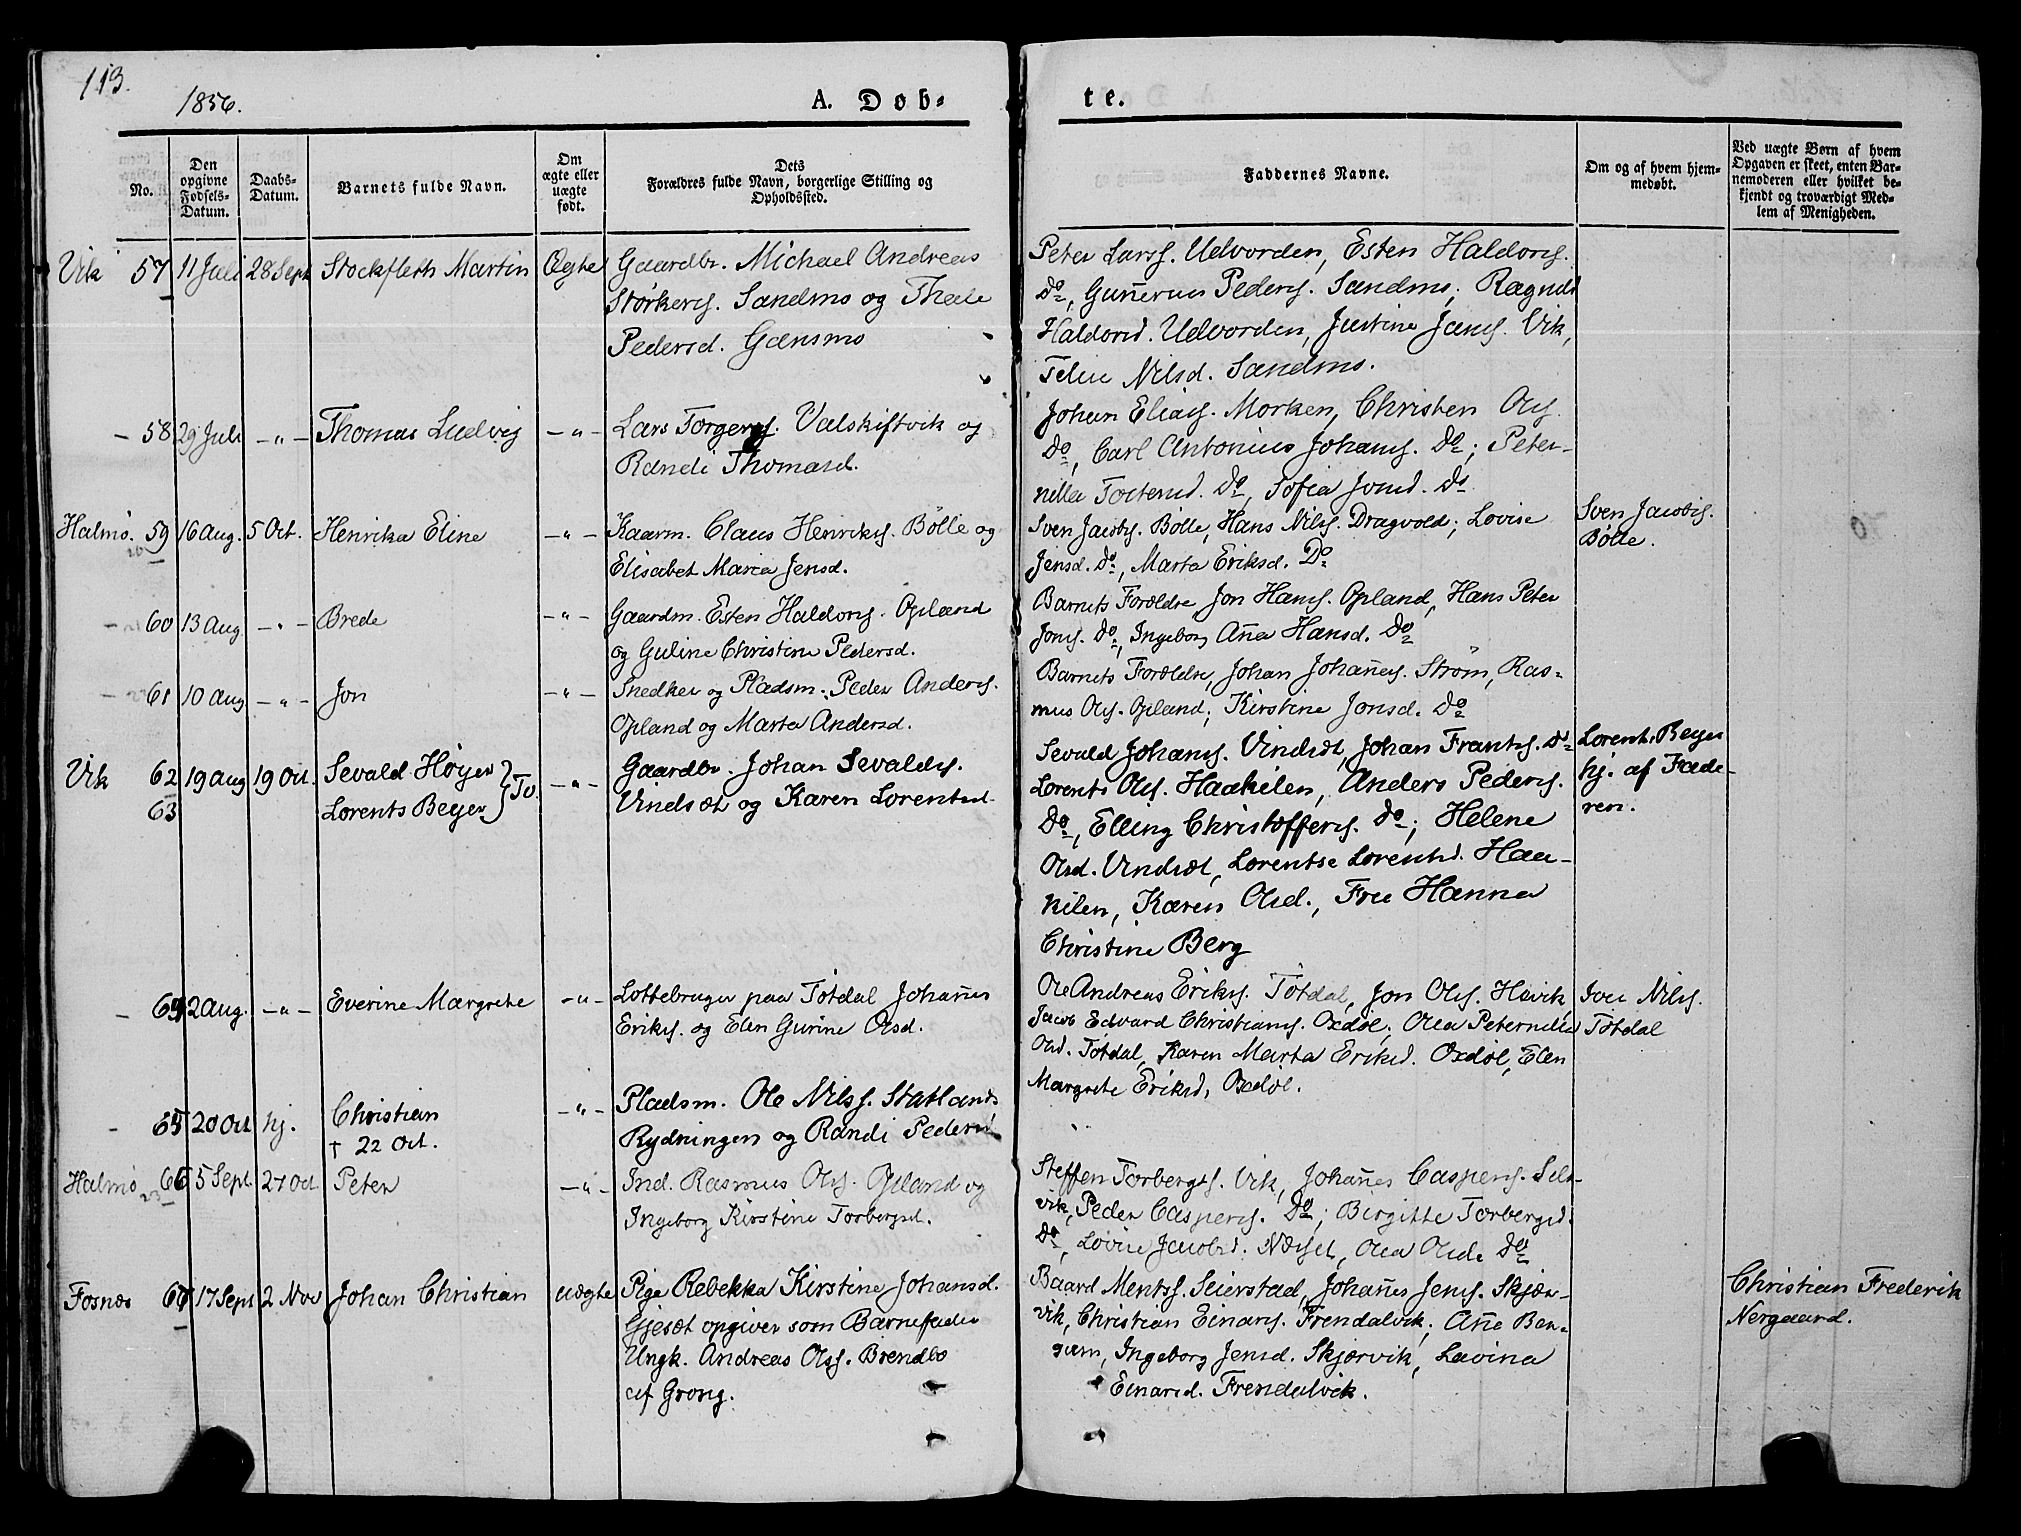 113.
1856.
A. Døb-
te.
No.
Den opgivne Fødsels-Datum.
Daabs-Datum.
Barnets fulde Navn.
Om ægte eller uægte født.
Dets
Forældres fulde Navn, borgerlige Stilling og
Opholdssted.
Faddernes Navne.
Om og af hvem hjem-
medøbt.
Ved uægte Børn af hvem
Opgaven er skeet, enten Bar-
nemoderen eller hvilket be-
kjendt og troværdigt Med-
lem af Menigheden.
Vik 57 11 Juli 28 Sept Stockfleth Martin Ægte Gaardbr. Michael Andreas
Størkers. Sandmo og
Pedersd. Gansmo
Peter Larss. Udvorden, Esten Haldors.
Do, Gunnerus Peders. Sandmo; Ragnild
Haldorsd. Udvorden, Justine Jans. Vik,
Nilsd. Sandmo.
- 58 29 Juli -"- Thomas Ludvig -"- Lars Torgers. Valskiftvik og
Randi Thomasd.
Johan Elias. Morken, Christen Ols.
Do, Carl Antonius Johans. Do; Peter-
nilla Do, Sofia Jonsd. Do
Halmø. 59 16 Aug. 5 Oct. Henrika Eline -"- Kaarm. Claus Henriks. Bölle og
Elisabet Maria Jensd.
Sven Jacobs. Bölle, Hans Nils. Dragvold; Lovise
Jensd. Do, Marta Eriksd. Do
Sven Jacobs.
Bölle.
- 60 13 Aug -"- Brede -"- Gaardm. Esten Haldors. Opland
og Guline Christine Pedersd.
Barnets Forældre, Jon Hans. Opland, Hans Peter
Jons. Do, Ingeborg Anna Hansd. Do
- 61 10 Aug -"- Jon -"- Snedker og Pladsm. Peder Anders.
Opland og Marta Andersd.
Barnets Forældre, Johan Johannes. Strøm, Ras-
mus Ols. Opland; Kirstine Jonsd. Do
Vik 62 19 Aug 19 Oct. Sevald Høyer } Tv. -"- Gaardbr. Johan Sevalds.
63 Lorents Beyer
Vindsæt og Karen Lorentsd.
Sevald Johans. Vindsæt, Johan Frants. Do
Lorents Ols. Haakilen, Anders Peders.
Do, Elling Christoffers. Do; Helene
Olsd. Vindsæt, Lorentse Lorentsd. Haa-
kilen, Karen Olsd., Fru Hanna
Christine Berg
Lorents Beyer
hj. af Fade-
ren.
- 64 2 Aug. -"- Everine Margrete -"- Lottebruger paa Totdal Johannes
Eriks. og Elen Gurine Olsd.
Ole Andreas Eriks. Totdal, Jon Ols. Havik,
Jacob Edvard Christians. Oxdøl; Olea Peternilla
Olsd. Totdal, Karen Marta Eriksd. Oxdøl, Elen
Margrete Eriksd. Oxdøl.
Iver Nils.
Totdal
- 65 20 Oct hj. Christian
† 22 Oct.
-"- Pladsm. Ole Nilss. Statlands
Rydningen og Randi Pedersd
Halmø 66 5 Sept. 27 Oct Peter -"- Ind. Rasmus Ols. Opland og
Ingeborg Kirstine Torbergsd.
Steffen Torbergs. Vik, Johannes Caspers. Sel-
vik, Peder Caspers. Do; Birgitte Torbergsd.
Do, Lovise Jacobsd. Næsset, Olea Olsd. Do
Fosnæs 67 17 Sept 2 Nov Johan Christian uægte Pige Rebekka Kirstine Johansd.
Gjesæt opgiver som Barnefader
Ungk. Andreas Olss. Brendbo
af Grong.
Baard Ments. Seierstad, Johannes Jens. Skjær-
vik, Christian Einars. Frendalvik; Anne Ben-
gum, Ingeborg Jensd. Skjærvik, Lavina
Einarsd. Frendalvik.
Christian Frederik
Nergaard.